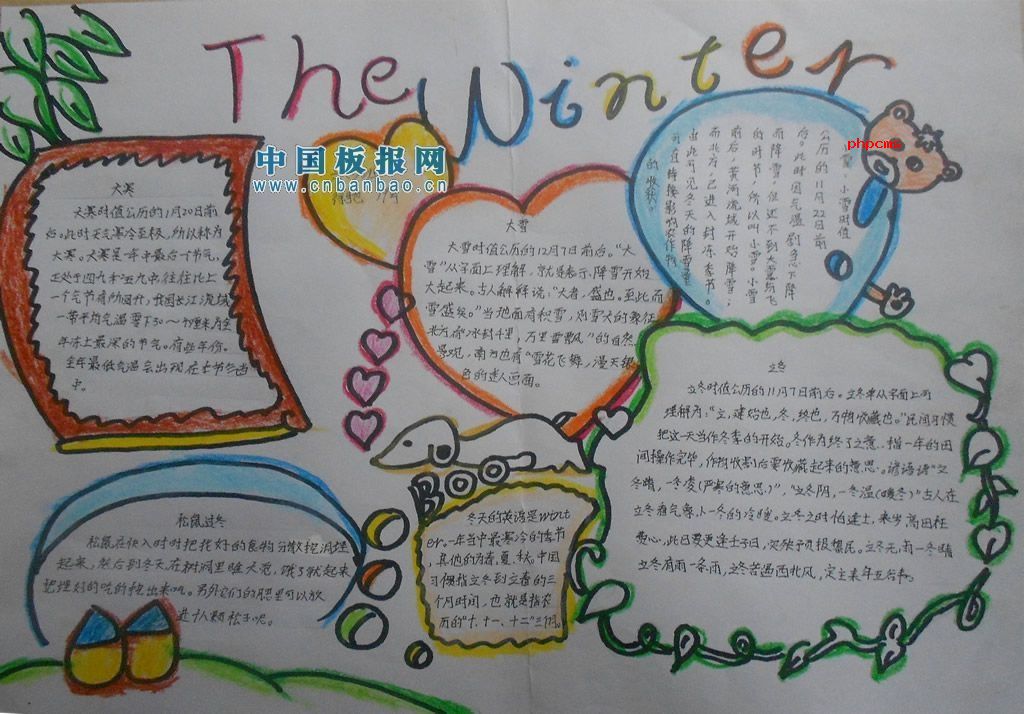 The Winter
中国板报网
www.cnbanbao.cn
phpcms
大寒
大寒时值公历的1月20日前
后。此时天气寒冷至极,所以称为
大寒。大寒是一年中最后一节气,
正处于四九末五九中,往往比上
一个气节有所回升,我国长江流域
一带平均气温零下
年冻土最深的节气。有些年份。
全年最低气温会出现在本节气当
中。
大雪
大雪时值公历的12月7日前后。“大
雪”从字面上理解,就是表示,降雪开始
大起来。古人解释说:“大者,盛也。至此而
雪盛矣。”当地面有积雪,
北方有“冰封千里,万里雪飘”的自然
景观,南方也有“雪花飞舞,漫天银
色的迷人画面。
小雪时值
公历的11月22日前
后。此时因气温剧急下降
而降雪,但还不到大雪纷飞
的时节,所以叫小雪。小雪
前后,黄河流域开始降雪;
而北方,已进入封冻季节。
由此可见冬天的降雪量
可直接影响农作物
的收获。
立冬
立冬时值公历的11月7日前后。立冬单从字面上而
理解为:“立,建始也,冬,终也,万物收藏也。”民间习惯
把这一天当作冬季的开始。冬作为终了之意,指一年的田
间操作完毕,作物收割后要收藏起来的意思。谚语讲“立
冬晴,一冬凌(严寒的意思)”,“立冬阴,一冬温(暖冬)”古人在
立冬有气象小一冬的冷暖。立冬之时怕逢壬,来岁高田枉
费心,此日更逢壬子日,灾殃预报损民。立冬无雨一冬晴
立冬有雨一条雨,立冬若遇西北风,定主来年五谷
松鼠过冬
松鼠在秋入时时把找好的食物分散把洞埋
起来,然后到冬天在树洞里睡大觉,饿了就起来
把埋好的吃的挖出来吃。另外它们的腮里可以放
进十八颗松子呢。
Boo
冬天的英语是wint
er。一年当中最寒冷的季节
,其他的为春、夏、秋。中国
习惯指立冬到立春的三
个月时间,也就是指农
历的“十、十一、十二”三个月。